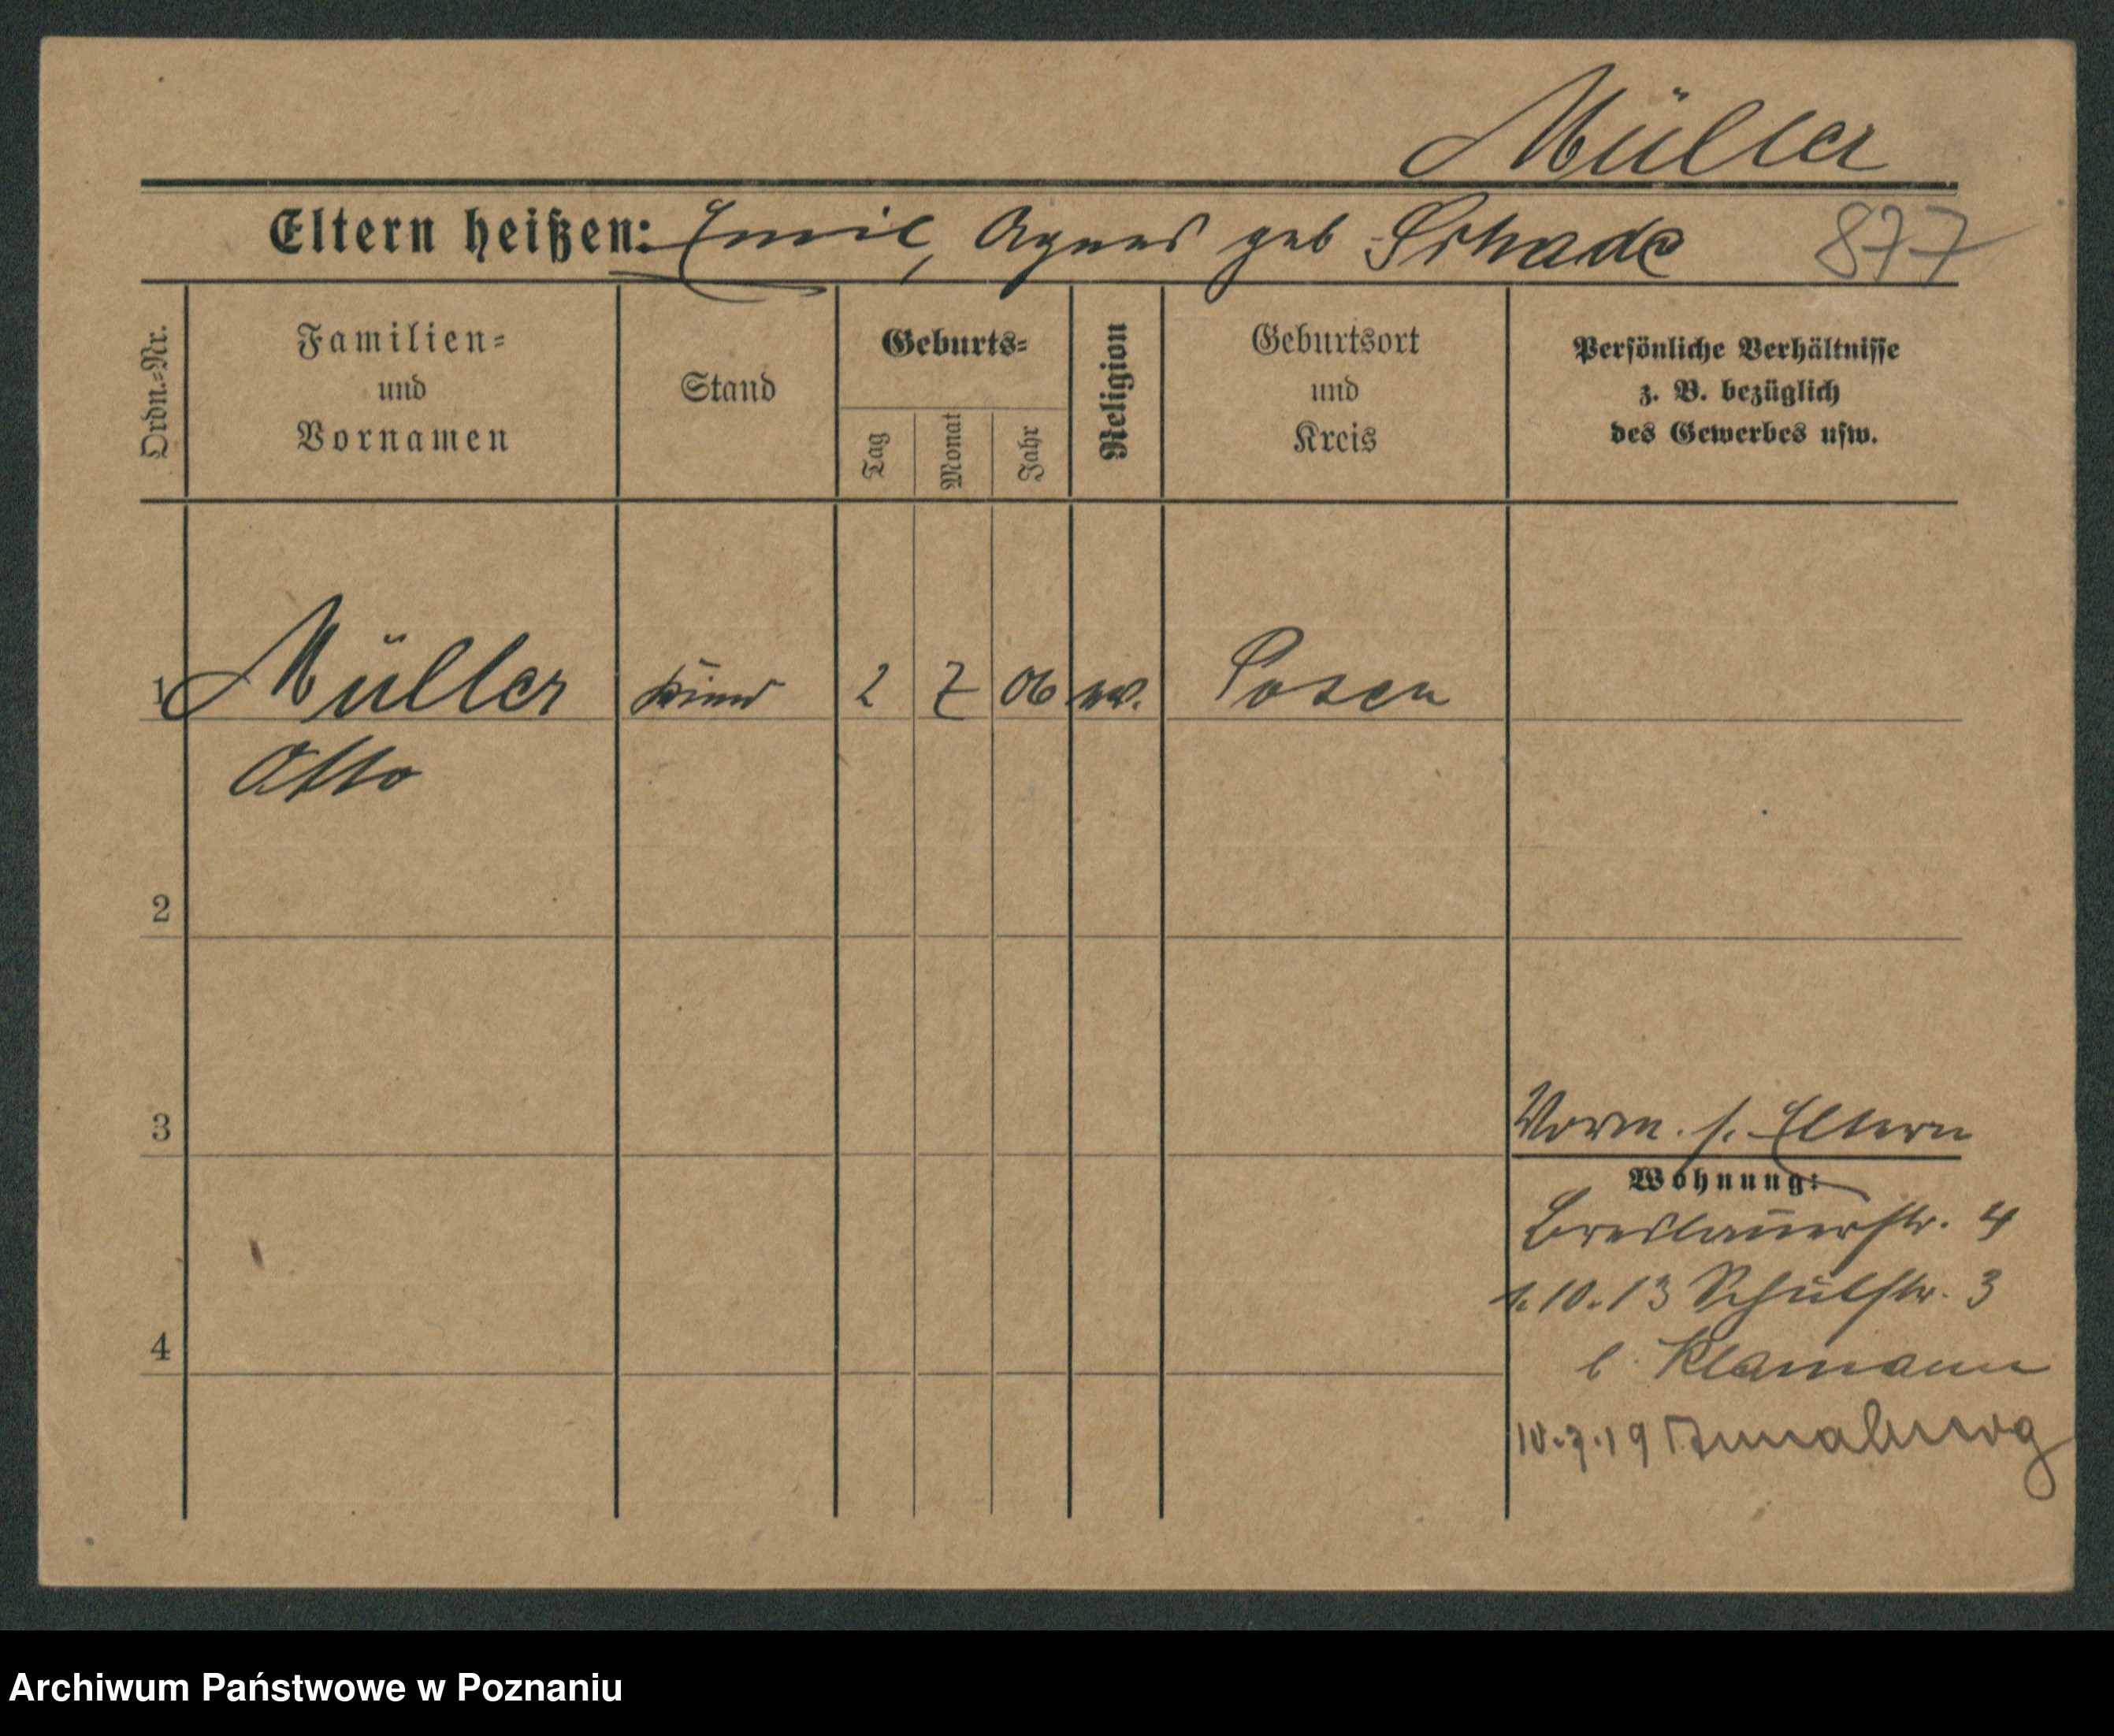 Müller
Eltern heißen: Emil, Agnes geb Schade 877
Ordn.-Nr.
Familien-
und
Vornamen
Stand
Geburts-
Tag
Monat
Jahr
Religion
Geburtsort
und
Kreis
Persönliche Verhältnisse
z. B. bezüglich
des Gewerbes usw.
1 Müller Kind 2 7 06 ev. Posen
Otto
2
3
Vorm. s. Eltern
Wohnung:
Breslauerstr. 4
1.10.13 Schulstr. 3
b. Klamann
4
10.7.19 Annaburg
Archiwum Państwowe w Poznaniu